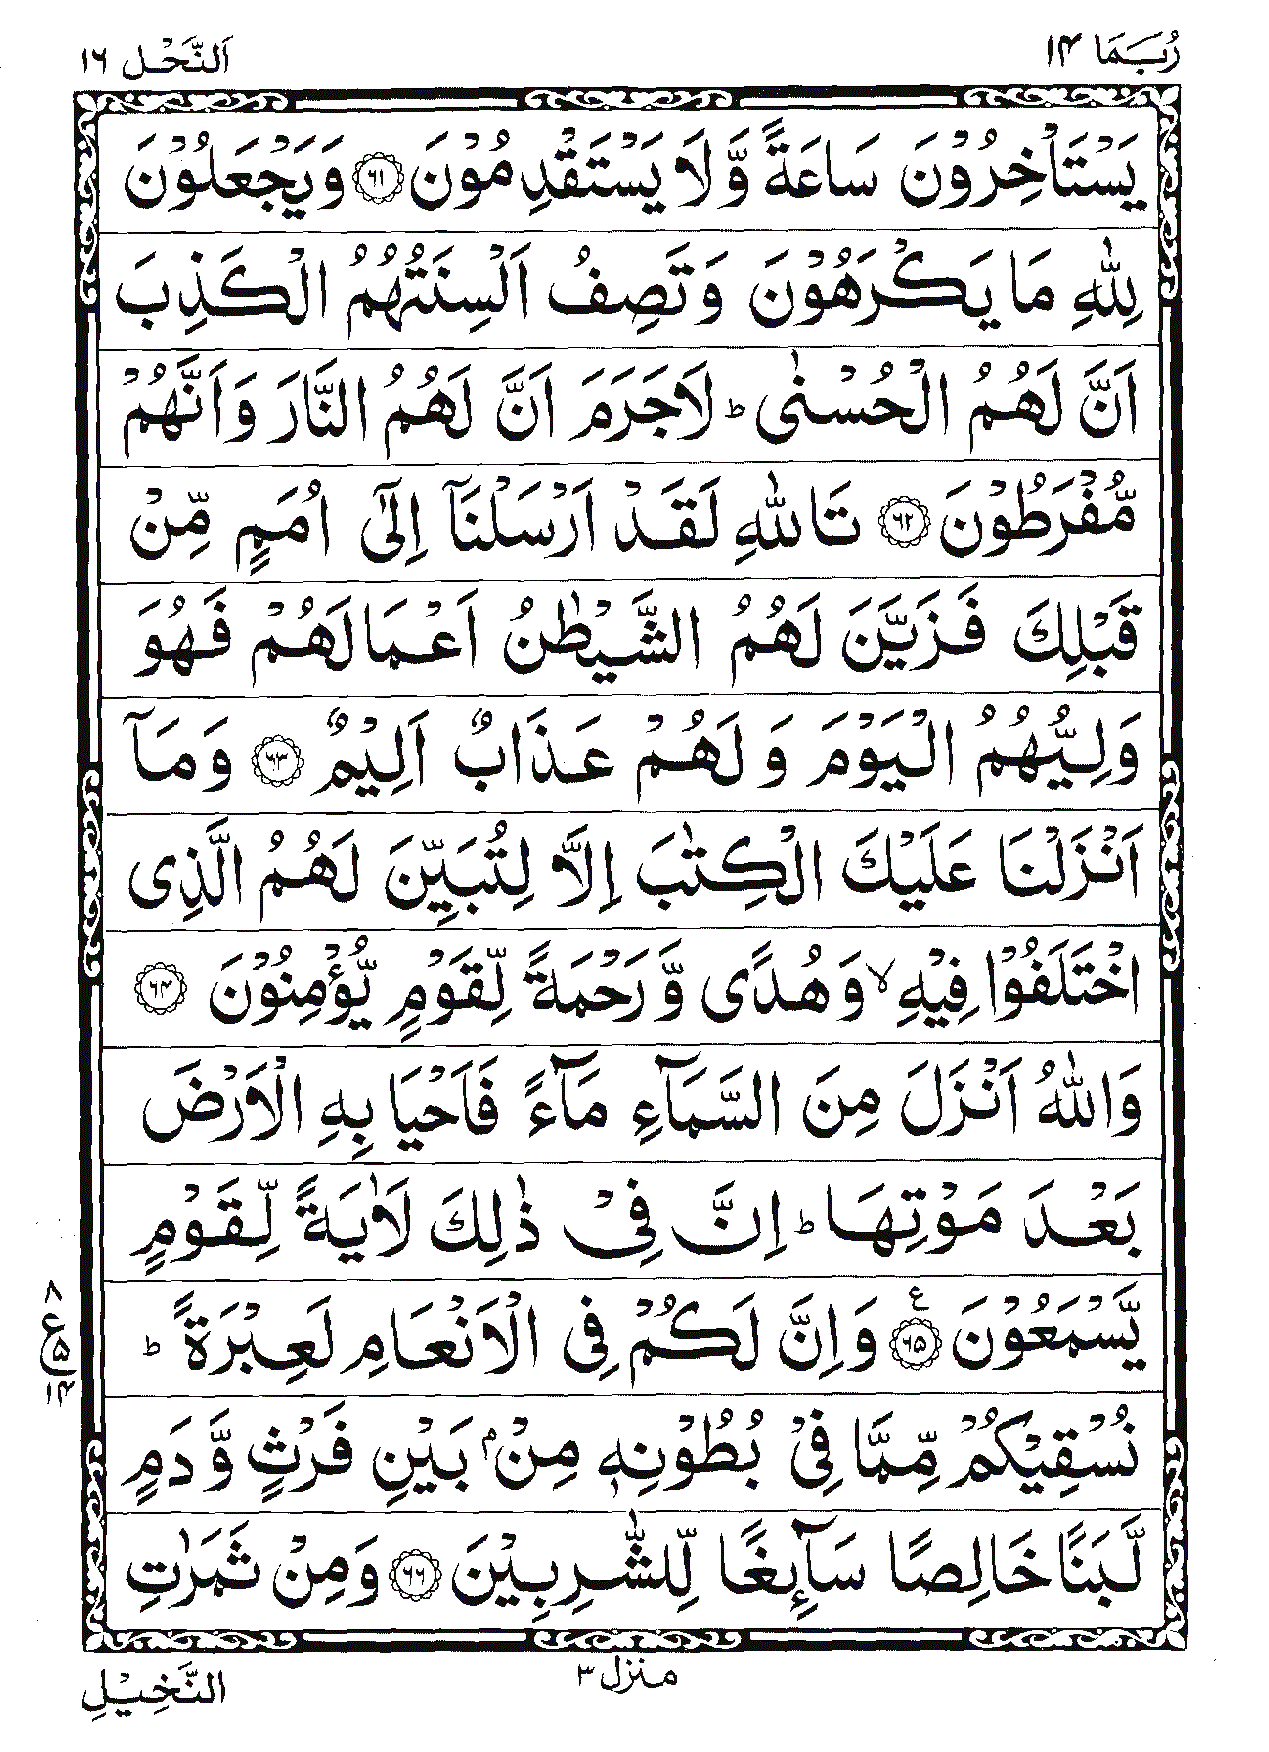 رُبَمَا ١٤
اَلنَّحْل ١٦
يَسْتَاْخِرُوْنَ سَاعَةً وَّ لَا يَسْتَقْدِمُوْنَ ﴿٦١﴾ وَيَجْعَلُوْنَ
لِلّٰهِ مَا يَكْرَهُوْنَ وَتَصِفُ اَلْسِنَتُهُمُ الْكَذِبَ
اَنَّ لَهُمُ الْحُسْنٰى ؕ لَاجَرَمَ اَنَّ لَهُمُ النَّارَ وَاَنَّهُمْ
مُّفْرَطُوْنَ ﴿٦٢﴾ تَاللّٰهِ لَقَدْ اَرْسَلْنَاۤ اِلٰۤى اُمَمٍ مِّنْ
قَبْلِكَ فَزَيَّنَ لَهُمُ الشَّيْطٰنُ اَعْمَالَهُمْ فَهُوَ
وَلِيُّهُمُ الْيَوْمَ وَ لَهُمْ عَذَابٌ اَلِيْمٌ ﴿٦٣﴾ وَمَاۤ
اَنْزَلْنَا عَلَيْكَ الْكِتٰبَ اِلَّا لِتُبَيِّنَ لَهُمُ الَّذِى
اخْتَلَفُوْا فِيْهِ ۙ وَهُدًى وَّ رَحْمَةً لِّقَوْمٍ يُّؤْمِنُوْنَ ﴿٦٤﴾
وَاللّٰهُ اَنْزَلَ مِنَ السَّمَآءِ مَآءً فَاَحْيَا بِهِ الْاَرْضَ
بَعْدَ مَوْتِهَا ؕ اِنَّ فِيْ ذٰلِكَ لَاٰيَةً لِّقَوْمٍ
يَّسْمَعُوْنَ ﴿٦٥﴾ ع وَاِنَّ لَكُمْ فِى الْاَنْعَامِ لَعِبْرَةً ؕ
٨
ع ٥
١٤
نُسْقِيْكُمْ مِّمَّا فِيْ بُطُوْنِهٖ مِنْۢ بَيْنِ فَرْثٍ وَّ دَمٍ
لَّبَنًا خَالِصًا سَآئِغًا لِّلشّٰرِبِيْنَ ﴿٦٦﴾ وَمِنْ ثَمَرٰتِ
منزل ٣
النَّخِيْلِ